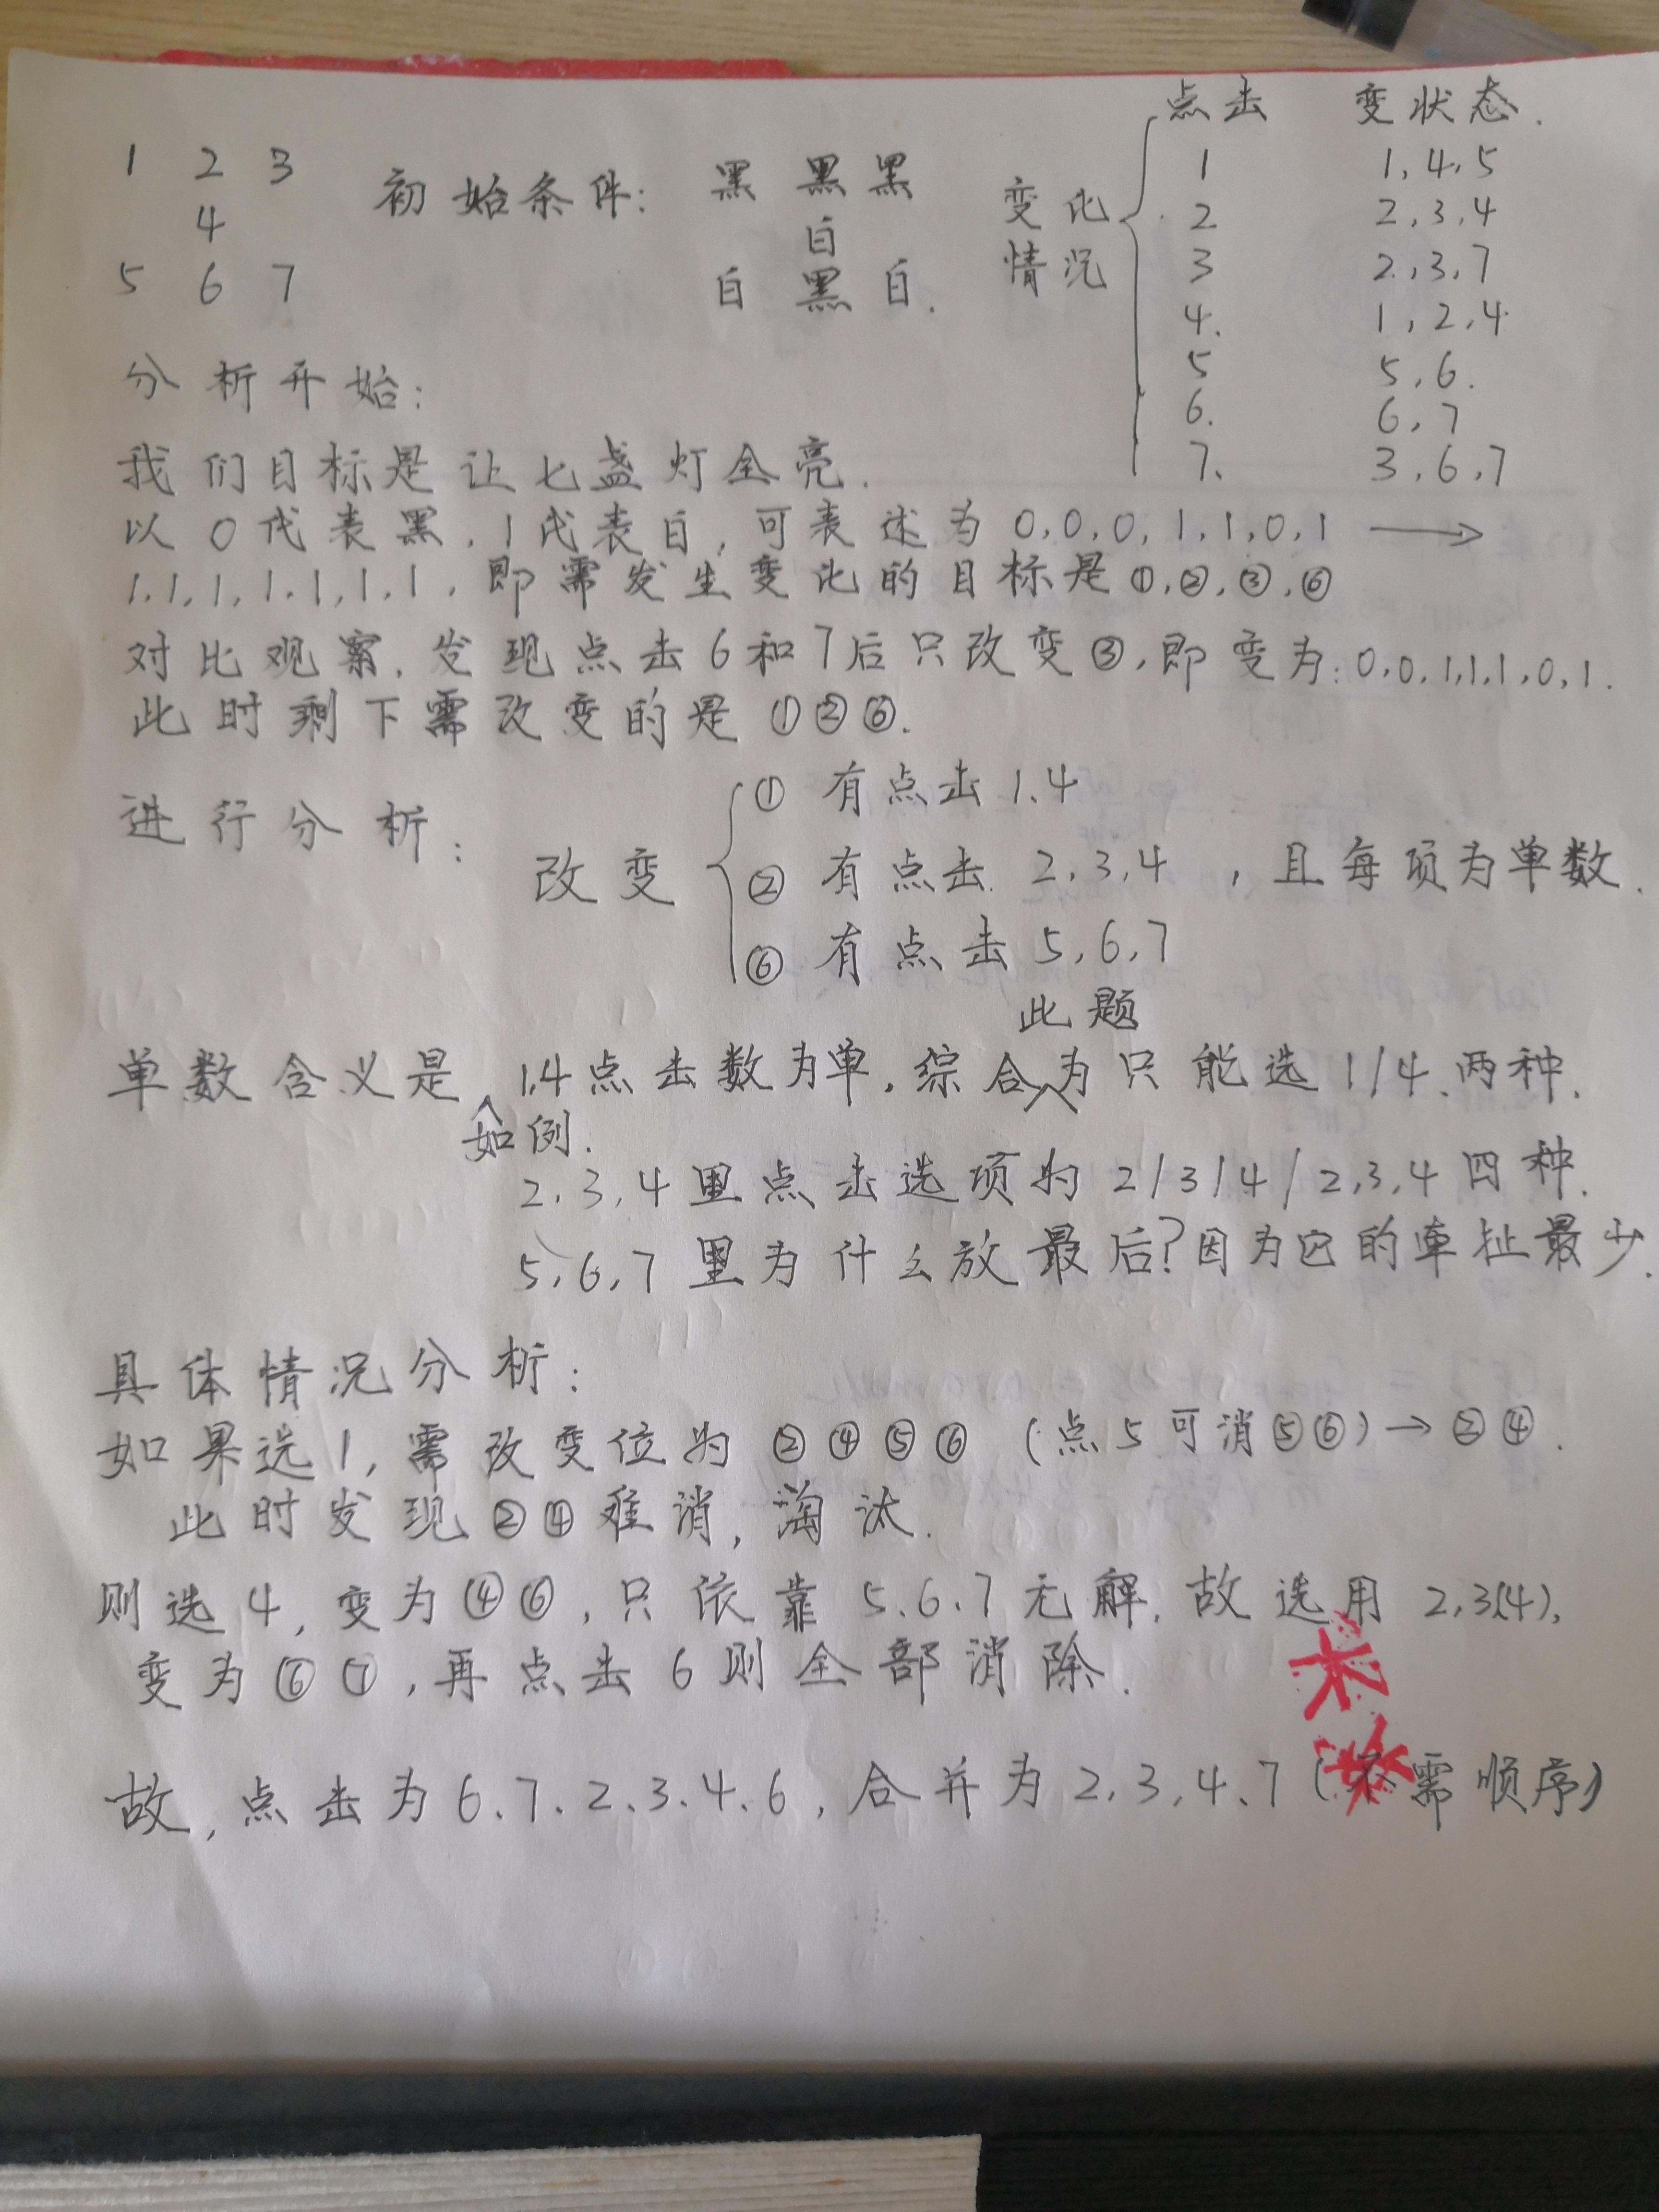 点击 变状态.
1 2 3 初始条件: 黑 黑 黑 变化 1 1,4,5
4 白 2 2,3,4
5 6 7 白 黑 白. 情况 3 2,3,7
4. 1,2,4
分析开始: 5 5,6.
6. 6,7
我们目标是让七盏灯全亮. 7. 3,6,7
以0代表黑,1代表白,可表述为0,0,0,1,1,0,1 →
1,1,1,1,1,1,1,即需发生变化的目标是①,②,③,⑥
对比观察,发现点击6和7后只改变③,即变为:0,0,1,1,1,0,1.
此时剩下需改变的是①②⑥.
① 有点击1.4
进行分析: 改变 ② 有点击. 2,3,4 ,且每项为单数.
⑥ 有点击5,6,7
此题
单数含义是 1,4点击数为单,综合为只能选1/4、两种.
如例.
2,3,4里点击选项为2/3/4/2,3,4四种.
5,6,7里为什么放最后?因为它的牵扯最少.
具体情况分析:
如果选1,需改变位为②④⑤⑥(点5可消⑤⑥)→②④.
此时发现②④难消,淘汰.
则选4,变为④⑥,只依靠5、6、7无解,故选用2,3(4),
变为⑥⑦,再点击6则全部消除.
故,点击为6、7、2、3、4、6,合并为2,3,4、7(不需顺序)